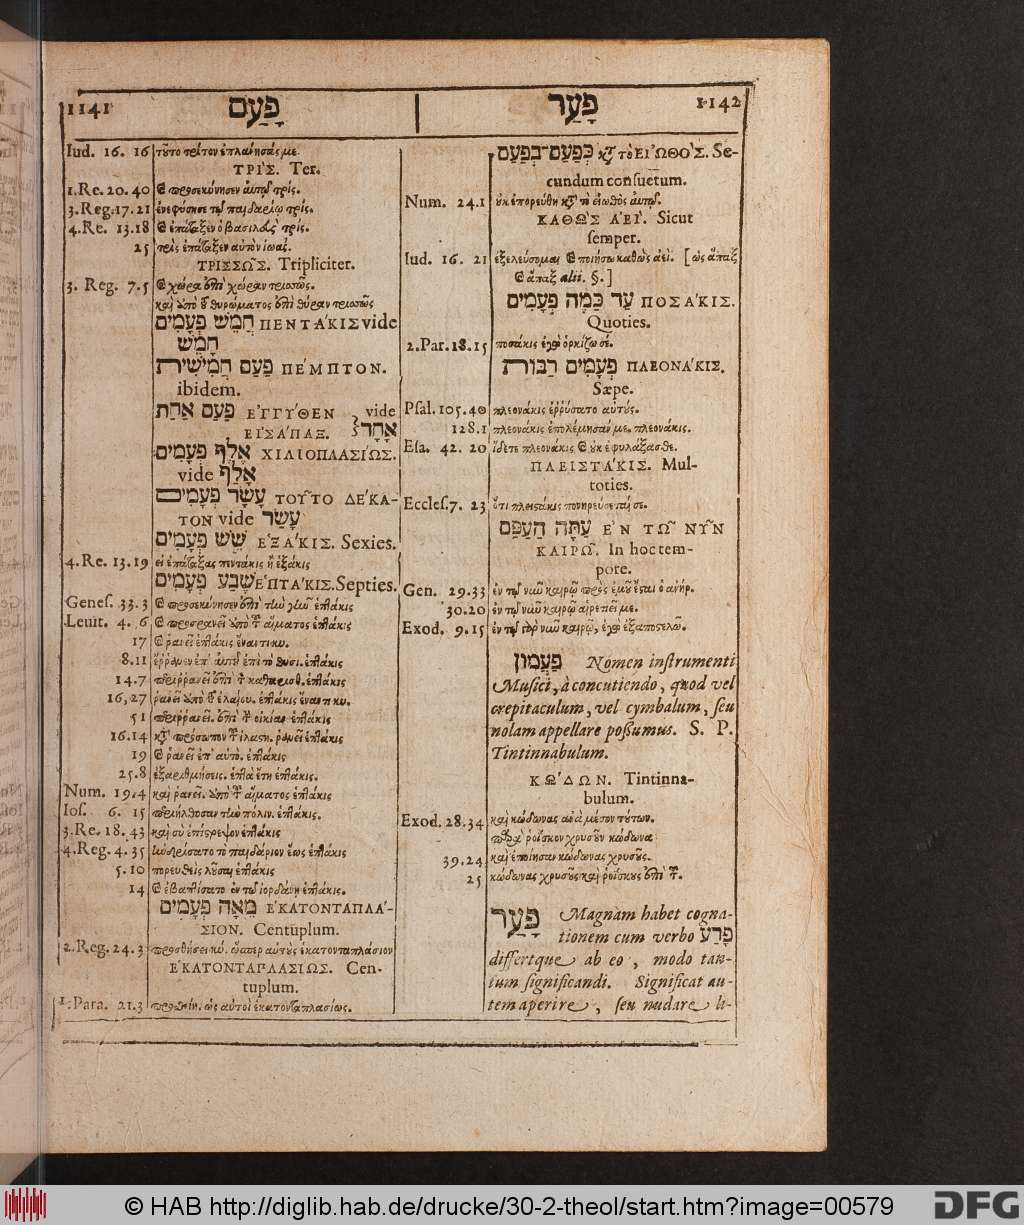 1141 פָּעַם
פָּעַר 1142
Iud. 16. 16 τοῦτο τρίτον ἐπλάνησάς με.
ΤΡΙ'Σ. Ter.
1. Re. 20. 40 καὶ προσεκύνησεν αὐτῷ τρίς.
3. Reg. 17. 21 ἐνεφύσησε τῷ παιδαρίῳ τρίς.
4. Re. 13. 18 καὶ ἐπάταξεν ὁ βασιλεὺς τρίς.
25 τρὶς ἐπάταξεν αὐτὸν ἰωάς.
ΤΡΙΣΣΩ͂Σ. Tripliciter.
3. Reg. 7. 5 καὶ χώρα ἐπὶ χώραν τρισσῶς.
καὶ ἀπὸ τοῦ θυρώματος ἐπὶ θύραν τρισσῶς
חֲמֵשׁ פְּעָמִים ΠΕΝΤΑ'ΚΙΣ vide
חָמֵשׁ
פַּעַם חֲמִישִׁית ΠΕ'ΜΠΤΟΝ.
ibidem.
פַּעַם אַחַת Ε'ΓΓΥ'ΘΕΝ vide
ΕΙ'ΣΑ'ΠΑΞ. אֶחָד
אֶלֶף פְּעָמִים ΧΙΛΙΟΠΛΑΣΙ'ΩΣ.
vide אֶלֶף
עָשָׂר פְּעָמִים ΤΟΥ͂ΤΟ ΔΕ'ΚΑ-
ΤΟΝ vide עָשַׂר
שֵׁשׁ פְּעָמִים Ε'ΞΑ'ΚΙΣ. Sexies.
4. Re. 13. 19 εἰ ἐπάταξας πεντάκις ἢ ἑξάκις
שֶׁבַע פְּעָמִים Ε'ΠΤΑ'ΚΙΣ. Septies.
Genes. 33. 3 καὶ προσεκύνησεν ἐπὶ τὴν γῆν ἑπτάκις
Leuit. 4. 6 καὶ προσρανεῖ ἀπὸ τοῦ αἵματος ἑπτάκις
17 καὶ ῥανεῖ ἑπτάκις ἔναντι κυ.
8. 11 ἔῤῥανεν ἐπ' αὐτοῦ ἐπὶ τὸ θυσι. ἑπτάκις
14. 7 περιῤῥανεῖ ἐπὶ τὸν καθαρισθ. ἑπτάκις
16, 27 ῥανεῖ ἀπὸ τοῦ ἐλαίου. ἑπτάκις ἔναντι κυ.
51 περιῤῥανεῖ. ἐπὶ τὴν οἰκίαν ἑπτάκις
16. 14 κατὰ πρόσωπον τοῦ ἱλαστη. ῥανεῖ ἑπτάκις
19 καὶ ῥανεῖ ἐπ' αὐτὸ. ἑπτάκις
25. 8 ἐξαριθμήσεις. ἑπτὰ ἔτη ἑπτάκις.
Num. 19. 4 καὶ ῥανεῖ. ἀπὸ τοῦ αἵματος ἑπτάκις
Ios. 6. 15 περιήλθοσαν τὴν πόλιν. ἑπτάκις.
3. Re. 18. 43 καὶ σὺ ἐπίστρεψον ἑπτάκις
4. Reg. 4. 35 τὸ παιδάριον ἕως ἑπτάκις
5. 10 πορευθεὶς λοῦσαι ἑπτάκις
14 καὶ ἐβαπτίσατο ἐν τῷ ἰορδάνῃ ἑπτάκις.
מֵאָה פְּעָמִים Ε'ΚΑΤΟΝΤΑΠΛΑ'-
ΣΙΟΝ. Centuplum.
2. Reg. 24. 3 προσθήσει κύ. ὥσπερ αὐτοὺς ἑκατονταπλάσιον
Ε'ΚΑΤΟΝΤΑΠΛΑΣΙ'ΩΣ. Cen-
tuplum.
1. Para. 21. 3 ὡς αὐτοὶ ἑκατονταπλασίως.
כְּפַעַם־בְּפַעַם κατὰ τὸ ΕΙ'ΩΘΟ'Σ. Se-
cundum consuetum.
Num. 24. 1 οὐκ ἐπορεύθη κατὰ τὸ εἰωθὸς αὐτῷ.
ΚΑΘΩ'Σ Α'ΕΙ'. Sicut
semper.
Iud. 16. 21 ἐξελεύσομαι καὶ ποιήσω καθὼς ἀεί. [ὡς ἅπαξ
καὶ ἅπαξ alii. §.]
עַד כַּמֶּה פְּעָמִים ΠΟΣΑ'ΚΙΣ.
Quoties.
2. Par. 18. 15 ποσάκις ἐγὼ ὁρκίζω σέ.
פְּעָמִים רַבּוֹת ΠΛΕΟΝΑ'ΚΙΣ.
Sæpe.
Psal. 105. 40 πλεονάκις ἐῤῥύσατο αὐτούς.
128. 1 πλεονάκις ἐπολέμησάν με. πλεονάκις.
Esa. 42. 20 ἴδετε πλεονάκις καὶ οὐκ ἐφυλάξασθε.
ΠΛΕΙΣΤΑ'ΚΙΣ. Mul-
toties.
Eccles. 7. 23 ὅτι πλειστάκις πονηρεύσεταί σε.
עַתָּה הַפַּעַם Ε'Ν ΤΩ͂ ΝΥ͂Ν
ΚΑΙΡΩ͂. In hoc tem-
pore.
Gen. 29. 33 ἐν τῷ νῦν καιρῷ πρὸς ἐμοῦ ἔσται ὁ ἀνήρ.
30. 20 ἐν τῷ νῦν καιρῷ αἱρετιεῖ με.
Exod. 9. 15 ἐν τῷ γὰρ νῦν καιρῷ, ἐγὼ ἐξαποστελῶ.
פַּעֲמוֹן Nomen instrumenti
Musici, à concutiendo, quod vel
crepitaculum, vel cymbalum, seu
nolam appellare possumus. S. P.
Tintinnabulum.
ΚΩ'ΔΩΝ. Tintinna-
bulum.
Exod. 28. 34 καὶ κώδωνας ἀνὰ μέσον τούτων.
παρὰ ῥοΐσκον χρυσοῦν κώδωνα
39. 24 καὶ ἐποίησαν κώδωνας χρυσοῦς.
25 κώδωνας χρυσοῦς καὶ ῥοΐσκους ἐπὶ τοῦ.
פָּעַר Magnam habet cogna-
tionem cum verbo פָּרַע
differtque ab eo, modo tan-
tum significandi. Significat au-
tem aperire, seu nudare li-
© HAB http://diglib.hab.de/drucke/30-2-theol/start.htm?image=00579
DFG